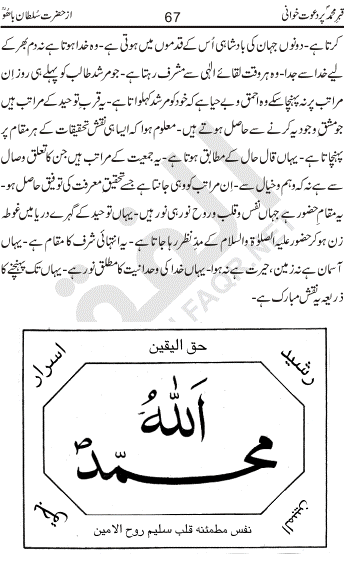 قہر محمد پر دعوت خوانی 67 از حضرت سُلطان باھُوؒ
کرتا ہے۔ دونوں جہان کی بادشاہی اُس کے قدموں میں ہوتی ہے۔ وہ خدا ہوتا ہے نہ دم بھر کے
لیے خدا سے جدا۔ وہ ہر وقت لقائے الٰہی سے مشرف رہتا ہے۔ جو مرشد طالب کو پہلے ہی روز اِن
مراتب پر نہ پہنچا سکے وہ احمق و بے حیا ہے کہ خود کو مرشد کہلواتا ہے۔ یہ قربِ توحید کے مراتب ہیں
جو مشقِ وجودیہ کرنے سے حاصل ہوتے ہیں۔ معلوم ہوا کہ ایسا ہی نقش تحقیقات کے ہر مقام پر
پہنچاتا ہے۔ یہاں قال حال کے مطابق ہوتا ہے۔ یہ جمعیت کے مراتب ہیں جن کا تعلق وصال
سے ہے نہ کہ وہم و خیال سے۔ اِن مراتب کو وہی جانتا ہے جسے تحقیقِ معرفت کی توفیق حاصل ہو۔
یہ مقامِ حضور ہے جہاں نفس و قلب و روح نور ہی نور ہیں۔ یہاں توحید کے گہرے دریا میں غوطہ
زن ہو کر حضور علیہ الصلوٰۃ والسلام کے مدِ نظر رہا جاتا ہے۔ یہ انتہائی شرف کا مقام ہے۔ یہاں
آسمان ہے نہ زمین، حیرت ہے نہ ہوا۔ یہاں خدا کی وحدانیت کا مطلق نور ہے۔ یہاں تک پہنچنے کا
ذریعہ یہ نقش مبارک ہے۔
حق الیقین
رشید
اسرار
اَللّٰهُ
محمد
المبین
نفس مطمئنہ قلب سلیم روح الامین